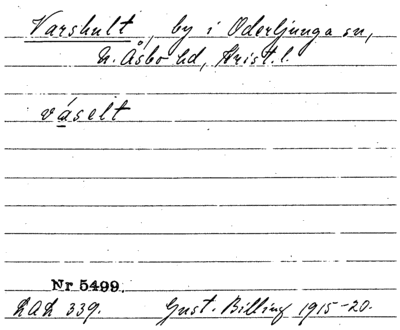 Varshult, by i Oderljunga sn,
N. Åsbo hd, Krist. l.
váselt
Nr 5499.
LAL 339. Gust. Billing 1915-20.